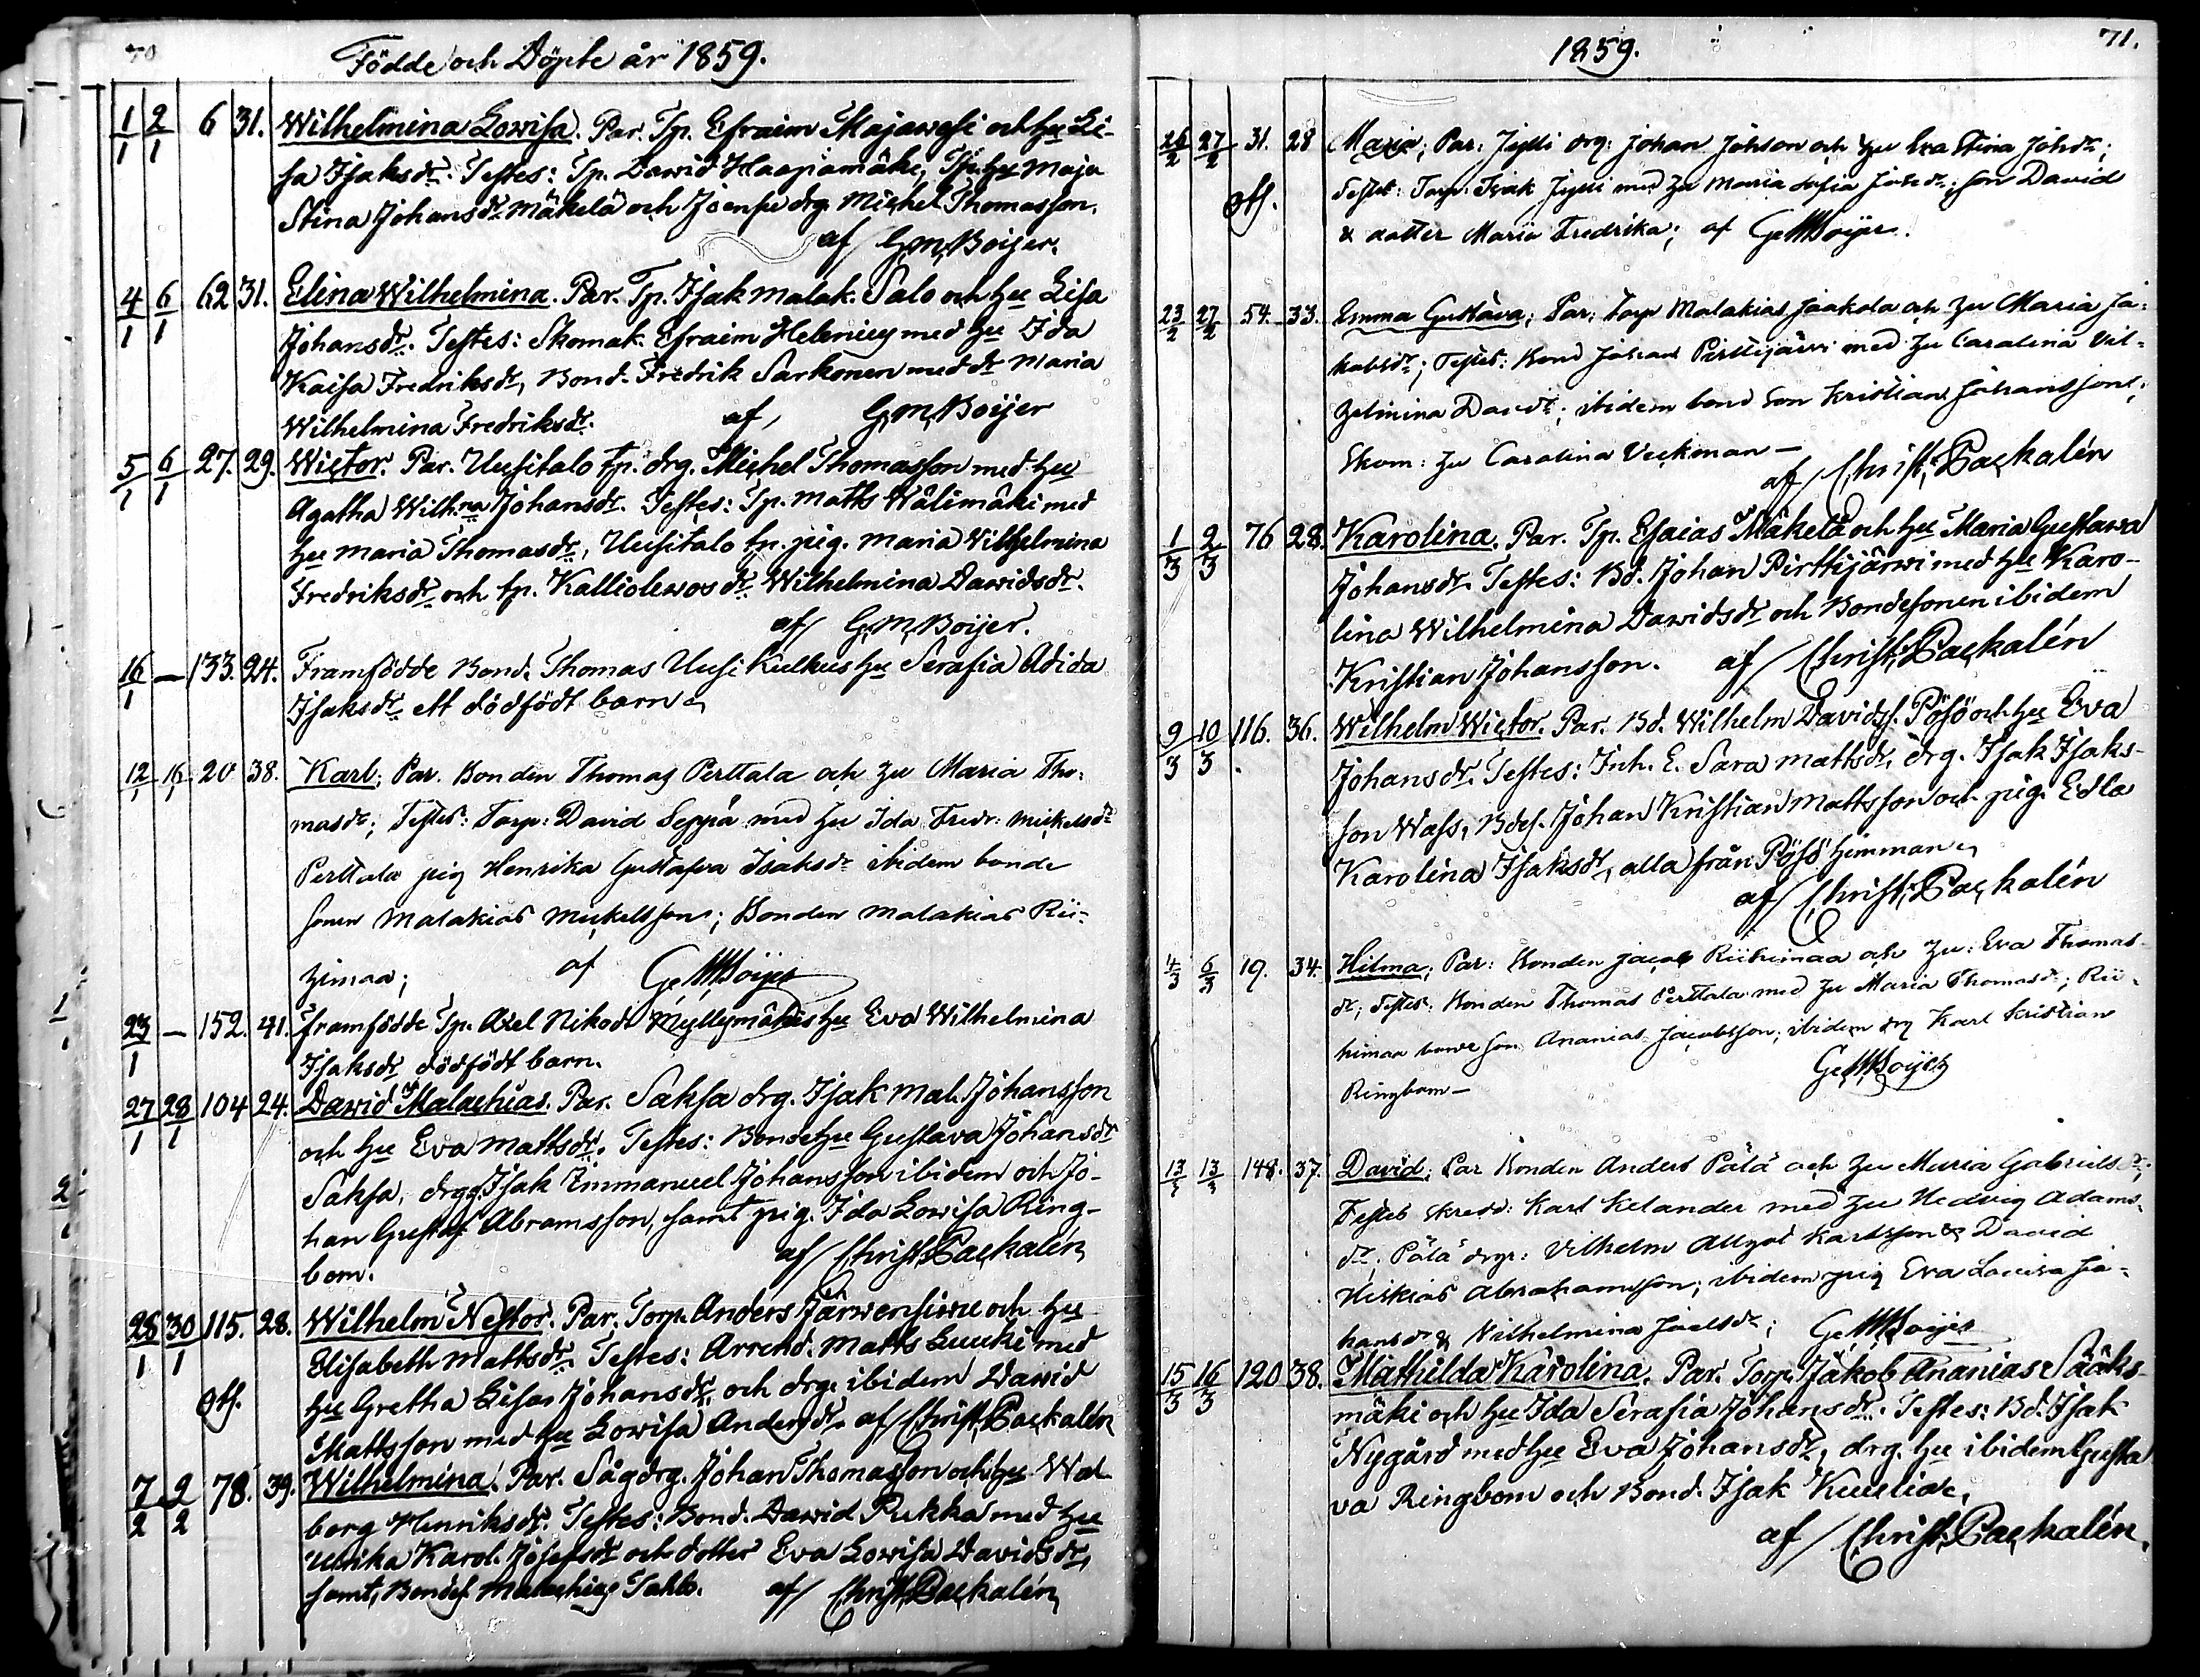 70
Födde och Döpte år 1859.
1/1 2/1 6 31. Wilhelmina Lowisa. Par. Tp. Efraim Majawesi och hu Li-
sa Isaksdr. Testes: Tp. Dawid Haapamäki, Tp. hu Maja
Stina Johansdr Mäkelä och Joensu drg. Michel Thomasson.
af G.M. Boijer.
4/1 6/1 62 31. Elina Wilhelmina. Par. Tp. Isak Malak. Salo och hu Lisa
Johansdr. Testes: Skomak. Efraim Helenius med hu Ida
Kaisa Fredriksdr, Bond. Fredrik Sarkonen med dr Maria
Wilhelmina Fredriksdr. af G.M. Boijer
5/1 6/1 27. 29. Wictor. Par. Uusitalo tp. drg. Michel Thomasson med hu
Agatha Wilh:na Johansdr. Testes: Tp. Matts Wälimäki med
hu Maria Thomasdr, Uusitalo tp. pig. Maria Wilhelmina
Fredriksdr och tp. Kalliolewos dr Wilhelmina Dawidsdr.
af G.M. Boijer.
16/1 — 133. 24. Framfödde Bond. Thomas Uusi Kulkus hu Serafia Adida
Isaksdr ett dödfödt barn.
12/1 16/1 20 38. Karl; Par. Bonden Thomas Perttala och hu Maria Tho-
masdr; Testes: Torp: David Seppä med hu Ida Fredr: Mickelsdr
Perttala pig Henrika Gustafva Isaksdr ibidem bonde
sonen Malakias Mickelsson; Bonden Malakias Rii-
himaa; af G.M. Boijer
23/1 — 152. 41. Framfödde Tp. Axel Nikod. Myllymäkis hu Eva Wilhelmina
Isaksdr dödfödt barn.
27/1 28/1 104 24. Dawid Malachias. Par. Saksa drg. Isak Mal. Johansson
och hu Eva Mattsdr. Testes: Bonde hu Gustava Johansdr
Saksa, drgg Isak Emmanuel Johansson ibidem och Jo-
han Gustaf Abramsson, samt pig. Ida Lowisa Ring-
bom. af Christ. Packalén
28/1 30/1 115. 28. Wilhelm Nestor. Par. Torp. Anders Järwensiwu och hu
Elisabeth Mattsdr. Testes: Arrend. Matts Luuki med
oth. hu Gretha Lisa Johansdr, och drg. ibidem Dawid
Mattsson med hu Lowisa Andersdr. af Christ. Packalén
7/2 9/2 78. 39. Wilhelmina. Par. Sågdrg. Johan Thomasson och hu Wal-
borg Henriksdr. Testes: Bond. Dawid Pukka med hu
Ulrika Karol. Josefsdr och dotter Eva Lowisa Davidsdr,
samt, Bondes. Malachias Tahlo. af Christ. Packalén
1859. 71.
26/2 27/2 31. 28 Maria; Par: Jylli drg: Johan Johson och hu Eva Stina Johdr;
oth. Testes: Torp: Isak Jylli med hu Maria Sofia Johsdr; son David
& dotter Maria Fredrika; af G.M. Boijer.
23/2 27/2 54. 33. Emma Gustava; Par: Torp Malakias Jaakola och hu Maria Ja-
kobsdr; Testes: Bond Johan Pirttijärvi med hu Carolina Vil-
helmina Davdr; ibidem bond son Kristian Johansson;
Skom: hu Carolina Veckman —
af Christ. Packalén
1/3 2/3 76 28. Karolina. Par. Tp. Esaias Mäkelä och hu Maria Gustawa
Johansdr. Testes: Bd. Johan Pirttijärwi med hu Karo-
lina Wilhelmina Dawidsdr och Bondesonen ibidem
Kristian Johansson. af Christ. Packalén
9/3 10/3 116. 36. Wilhelm Wictor. Par. Bd. Wilhelm Davidss. Pösö och hu Eva
Johansdr. Testes: Inh. E. Sara Mattsdr, drg. Isak Isaks-
son Wass, Bdes. Johan Kristian Mattsson och pig. Edla
Karolina Isaksdr, alla från Pösö hemman.
af Christ. Packalén
4/3 6/3 19. 34. Hilma; Par: Bonden Jacob Riihimaa och hu: Eva Thomas-
dr; Testes: Bonden Thomas Perttala med hu Maria Thomasdr; Rii-
himaa bonde son Ananias Jacobsson; ibidem drg Karl Kristian
Ringbom — G.M. Boijer
13/3 13/3 148. 37. David; Par Bonden Anders Pätä och hu Maria Gabriels dr;
Testes skredd: Karl Kelander med hu Hedvig Adams-
dr, Pätä drgr: Vilhelm August Karlsson & David
Hiskias Abrahamsson; ibidem pig Eva Lovisa Jo-
hansdr & Vilhelmina Joelsdr; G.M. Boijer
15/3 16/3 120 38. Mathilda Karolina. Par. Torp. Jakob Ananias Sääks-
mäki och hu Ida Serafia Johansdr. Testes: Bd. Isak
Nygård med hu Eva Johansdr, drg. hu ibidem Gusta
va Ringbom och Bond. Isak Kuulia.
af Christ. Packalén.